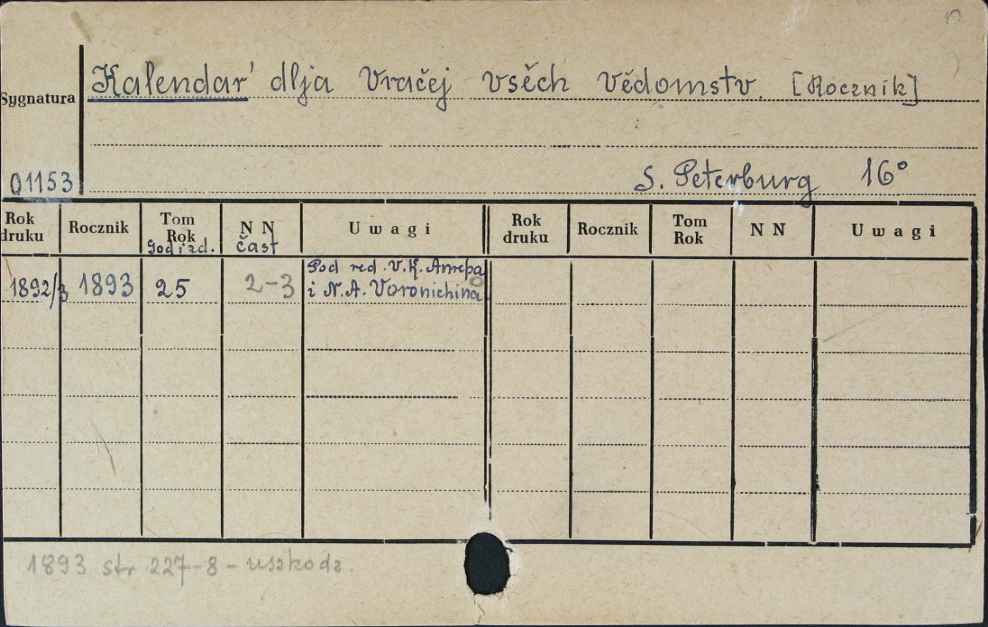 Kalendar' dlja Vračej vsěch Vědomstv. [Rocznik]
Sygnatura
01153
S. Peterburg 16°
Rok druku Rocznik Tom Rok N N U w a g i Rok druku Rocznik Tom Rok N N U w a g i
God izd. čast
1892/3 1893 25 2-3 Pod red. V.K. Anrepa
i N.A. Voronichina
1893 str 227-8 - uszkodz.